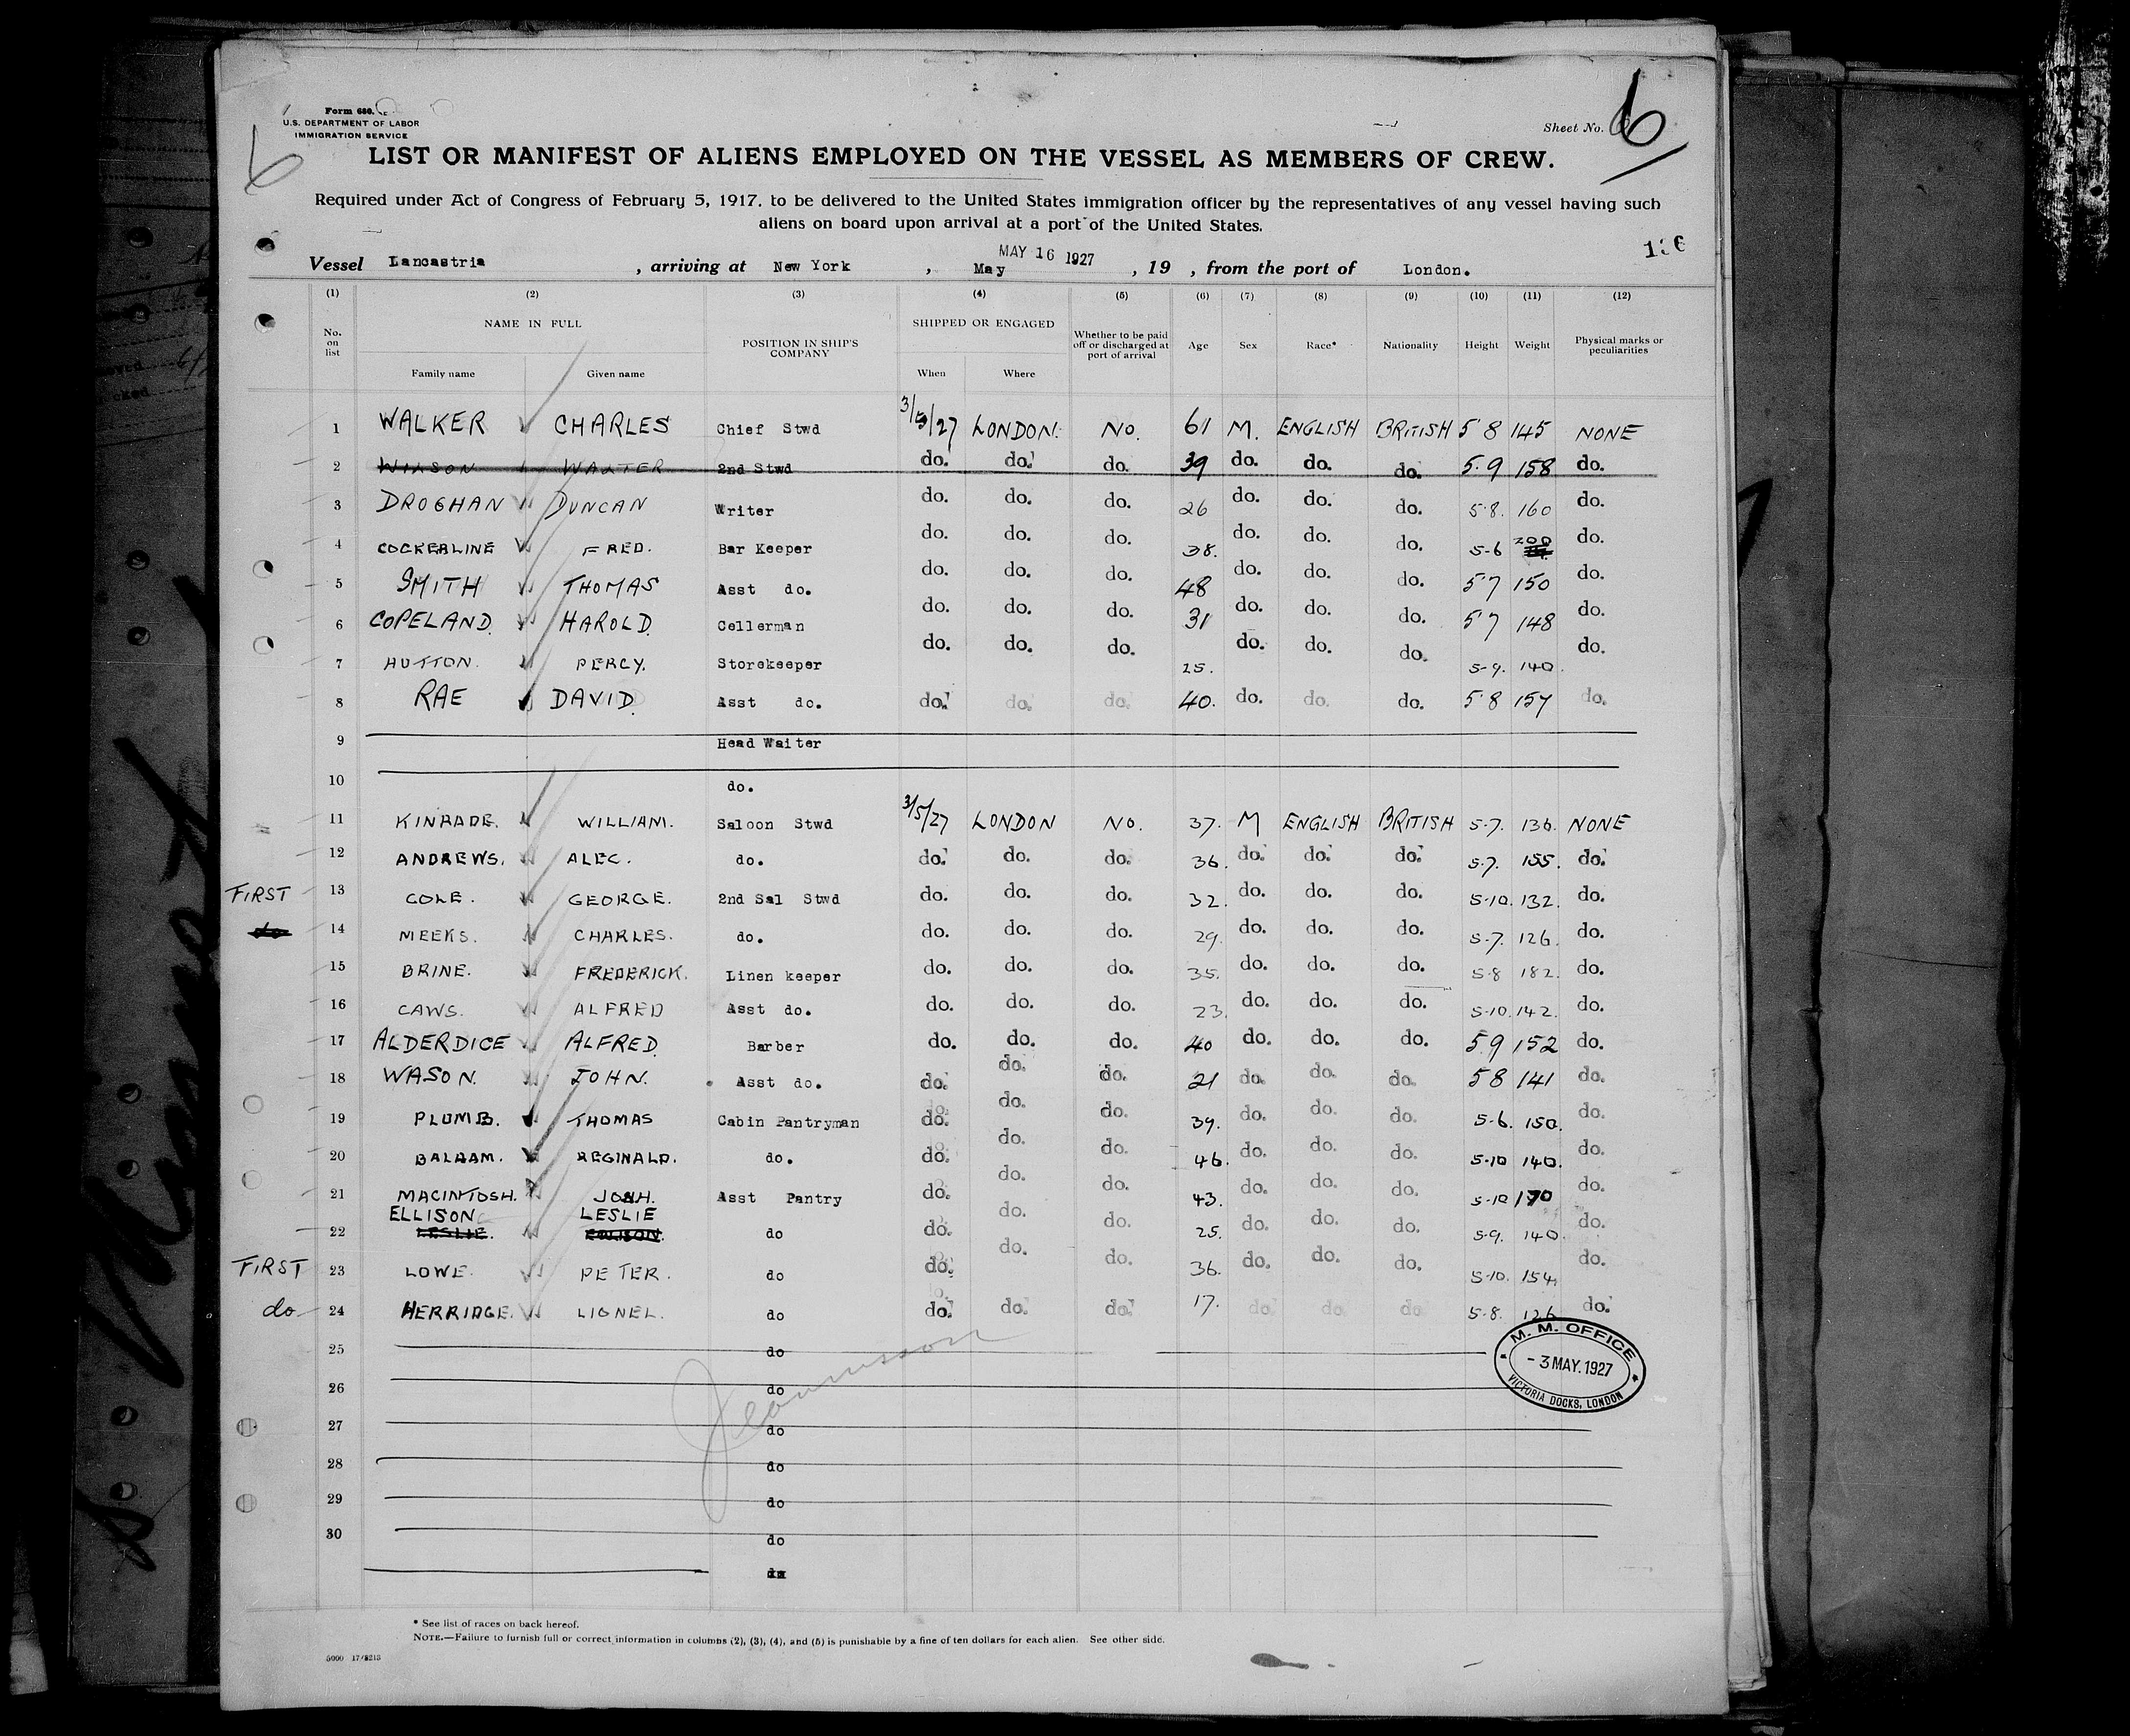 Form 680.
U.S. DEPARTMENT OF LABOR
IMMIGRATION SERVICE
Sheet No. 6
6
LIST OR MANIFEST OF ALIENS EMPLOYED ON THE VESSEL AS MEMBERS OF CREW.
Required under Act of Congress of February 5, 1917, to be delivered to the United States immigration officer by the representatives of any vessel having such
aliens on board upon arrival at a port of the United States.
136
MAY 16 1927
Vessel Lancastria, arriving at New York, May, 19 , from the port of London.
(1) (2) (3) (4) (5) (6) (7) (8) (9) (10) (11) (12)
No. on list NAME IN FULL Family name Given name POSITION IN SHIP'S COMPANY SHIPPED OR ENGAGED When Where Whether to be paid off or discharged at port of arrival Age Sex Race* Nationality Height Weight Physical marks or peculiarities
1 WALKER CHARLES Chief Stwd 3/5/27 LONDON. No. 61 M. ENGLISH BRITISH 5 8 145 NONE
2 WILSON WALTER 2nd Stwd do. do. do. 39 do. do. do. 5.9 158 do.
3 DROGHAN DUNCAN Writer do. do. do. 26 do. do. do. 5.8. 160 do.
4 COCKERLINE FRED. Bar Keeper do. do. do. 38. do. do. do. 5-6 200 do.
5 SMITH THOMAS Asst do. do. do. do. 48 do. do. do. 5 7 150 do.
6 COPELAND. HAROLD. Cellerman do. do. do. 31 do. do. do. 5 7 148 do.
7 HUTTON. PERCY. Storekeeper do. do. do. 25. do. do. do. 5-9. 140. do.
8 RAE DAVID. Asst do. do. do. do. 40. do. do. do. 5 8 157 do.
9 Head Waiter
10 do.
11 KINRADE. WILLIAM. Saloon Stwd 3/5/27 LONDON No. 37. M ENGLISH BRITISH 5-7. 136. NONE
12 ANDREWS. ALEC. do. do. do. do. 36. do. do. do. 5-7. 155. do.
FIRST 13 COLE. GEORGE. 2nd Sal Stwd do. do. do. 32. do. do. do. 5-10. 132. do.
do 14 MEEKS. CHARLES. do. do. do. do. 29. do. do. do. 5-7. 126. do.
15 BRINE. FREDERICK. Linen keeper do. do. do. 35. do. do. do. 5-8 182. do.
16 CAWS. ALFRED Asst do. do. do. do. 23. do. do. do. 5-10. 142. do.
17 ALDERDICE ALFRED. Barber do. do. do. 40 do. do. do. 5.9 152 do.
18 WASON. JOHN. Asst do. do. do. do. 21 do. do. do. 5 8 141 do.
19 PLUMB. THOMAS Cabin Pantryman do. do. do. 39. do. do. do. 5-6. 150. do.
20 BALAAM. REGINALD. do. do. do. do. 46. do. do. do. 5-10 140. do.
21 MACINTOSH. JOHN. Asst Pantry do. do. do. 43. do. do. do. 5-10 170 do.
ELLISON LESLIE
22 LESLIE. ELLISON. do do. do. do. 25. do. do. do. 5-9. 140. do.
FIRST 23 LOWE. PETER. do do. do. do. 36. do. do. do. 5-10. 154. do.
do 24 HERRIDGE. LIONEL. do do. do. do. 17. do. do. do. 5-8. 126 do.
25 do
26 do
27 do
28 do
29 do
30 do
M. M. OFFICE
- 3 MAY. 1927
VICTORIA DOCKS, LONDON
* See list of races on back hereof.
NOTE.—Failure to furnish full or correct information in columns (2), (3), (4), and (5) is punishable by a fine of ten dollars for each alien. See other side.